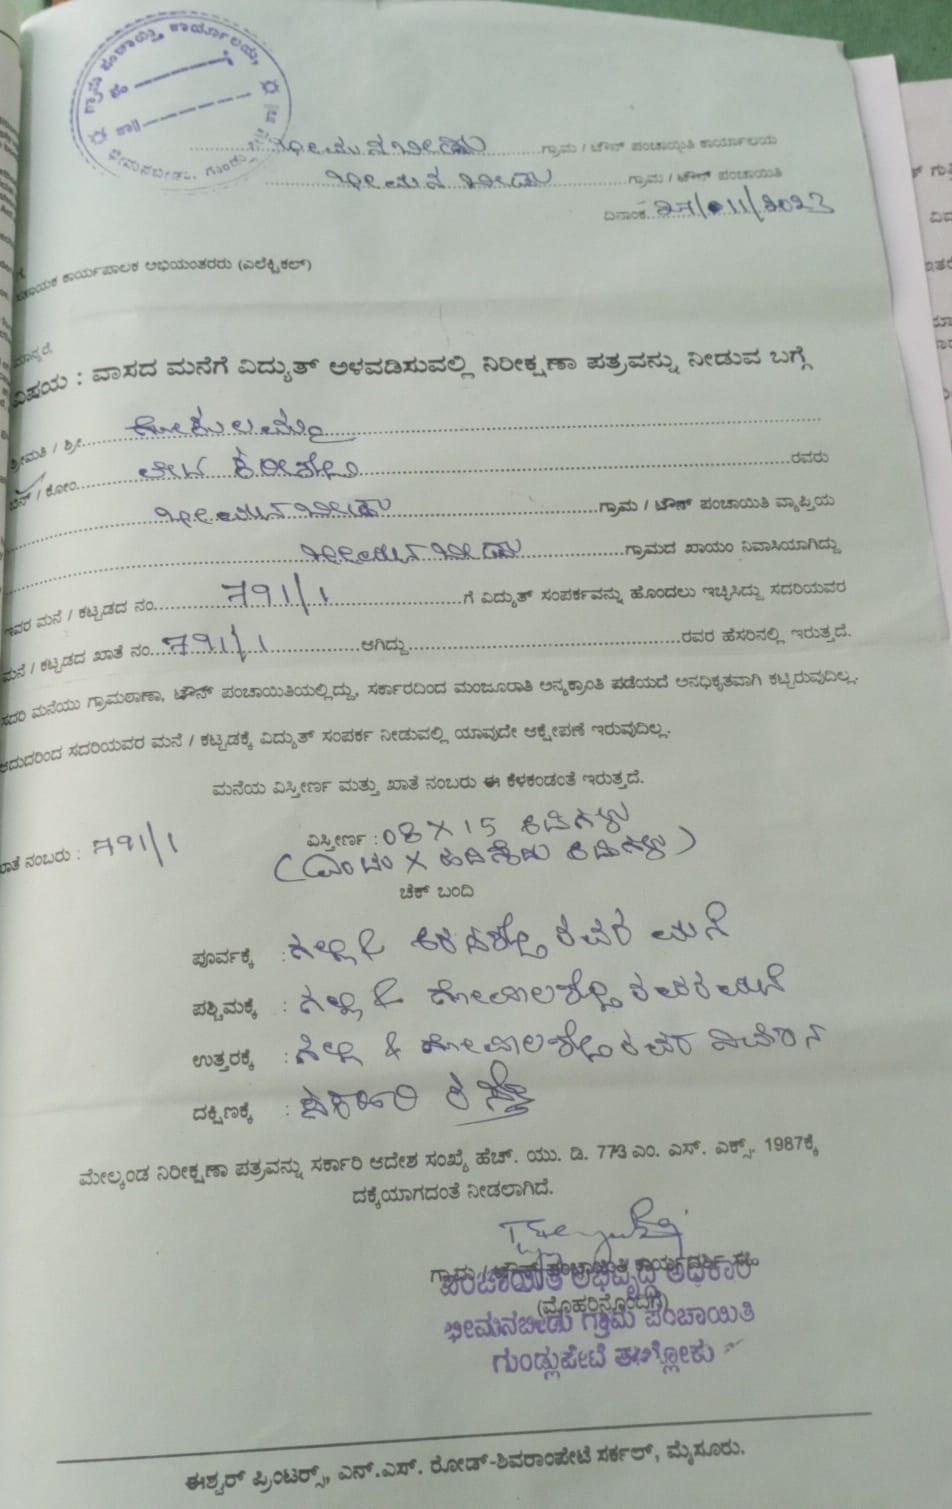 ಗ್ರಾಮ ಪಂಚಾಯ್ತಿ ಕಾರ್ಯಾಲಯ,
ಭೀಮನಬೀಡು, ಗುಂಡ್ಲು
ಭೀಮನಬೀಡು ಗ್ರಾಮ / ಟೌನ್ ಪಂಚಾಯಿತಿ ಕಾರ್ಯಾಲಯ
ಭೀಮನಬೀಡು ಗ್ರಾಮ / ಟೌನ್ ಪಂಚಾಯಿತಿ
ದಿನಾಂಕ 27/11/2023
ಸಹಾಯಕ ಕಾರ್ಯಪಾಲಕ ಅಭಿಯಂತರರು (ಎಲೆಕ್ಟ್ರಿಕಲ್)
ಮಾನ್ಯರೆ,
ವಿಷಯ : ವಾಸದ ಮನೆಗೆ ವಿದ್ಯುತ್ ಅಳವಡಿಸುವಲ್ಲಿ ನಿರೀಕ್ಷಣಾ ಪತ್ರವನ್ನು ನೀಡುವ ಬಗ್ಗೆ
ಶ್ರೀಮತಿ / ಶ್ರೀ
ಬಿನ್ / ಕೋಂ ರವರು
ಭೀಮನಬೀಡು ಗ್ರಾಮ / ಟೌನ್ ಪಂಚಾಯಿತಿ ವ್ಯಾಪ್ತಿಯ
ಭೀಮನಬೀಡು ಗ್ರಾಮದ ಖಾಯಂ ನಿವಾಸಿಯಾಗಿದ್ದು
ಇವರ ಮನೆ / ಕಟ್ಟಡದ ನಂ. 791/1 ಗೆ ವಿದ್ಯುತ್ ಸಂಪರ್ಕವನ್ನು ಹೊಂದಲು ಇಚ್ಛಿಸಿದ್ದು ಸದರಿಯವರ
ಮನೆ / ಕಟ್ಟಡದ ಖಾತೆ ನಂ. 791/1 ಆಗಿದ್ದು ರವರ ಹೆಸರಿನಲ್ಲಿ ಇರುತ್ತದೆ.
ಸದರಿ ಮನೆಯು ಗ್ರಾಮಠಾಣಾ, ಟೌನ್ ಪಂಚಾಯಿತಿಯಲ್ಲಿದ್ದು, ಸರ್ಕಾರದಿಂದ ಮಂಜೂರಾತಿ ಅನ್ಯಕ್ರಾಂತಿ ಪಡೆಯದೆ ಅನಧಿಕೃತವಾಗಿ ಕಟ್ಟಿರುವುದಿಲ್ಲ.
ಆದುದರಿಂದ ಸದರಿಯವರ ಮನೆ / ಕಟ್ಟಡಕ್ಕೆ ವಿದ್ಯುತ್ ಸಂಪರ್ಕ ನೀಡುವಲ್ಲಿ ಯಾವುದೇ ಆಕ್ಷೇಪಣೆ ಇರುವುದಿಲ್ಲ.
ಮನೆಯ ವಿಸ್ತೀರ್ಣ ಮತ್ತು ಖಾತೆ ನಂಬರು ಈ ಕೆಳಕಂಡಂತೆ ಇರುತ್ತದೆ.
ಖಾತೆ ನಂಬರು : 791/1 ವಿಸ್ತೀರ್ಣ : 08 X 15 ಅಡಿಗಳು
(ಎಂಟು X ಹದಿನೈದು ಅಡಿಗಳು)
ಚೆಕ್ ಬಂದಿ
ಪೂರ್ವಕ್ಕೆ : ಗಲ್ಲಿ & ರವರ ಮನೆ
ಪಶ್ಚಿಮಕ್ಕೆ : ಗಲ್ಲಿ & ಗೋಪಾಲಶೆಟ್ಟಿ ರವರ ಮನೆ
ಉತ್ತರಕ್ಕೆ : ಗಲ್ಲಿ & ಗೋಪಾಲಶೆಟ್ಟಿ ರವರ
ದಕ್ಷಿಣಕ್ಕೆ : ಸರ್ಕಾರಿ ರಸ್ತೆ
ಮೇಲ್ಕಂಡ ನಿರೀಕ್ಷಣಾ ಪತ್ರವನ್ನು ಸರ್ಕಾರಿ ಆದೇಶ ಸಂಖ್ಯೆ ಹೆಚ್. ಯು. ಡಿ. 773 ಎಂ. ಎಸ್. ಎಕ್ಸ್. 1987ಕ್ಕೆ
ದಕ್ಕೆಯಾಗದಂತೆ ನೀಡಲಾಗಿದೆ.
ಗ್ರಾಮ / ಟೌನ್ ಪಂಚಾಯಿತಿ ಕಾರ್ಯದರ್ಶಿ ಸಹಿ
ಪಂಚಾಯಿತಿ ಅಭಿವೃದ್ಧಿ ಅಧಿಕಾರಿ
(ಮೊಹರಿನೊಂದಿಗೆ)
ಭೀಮನಬೀಡು ಗ್ರಾಮ ಪಂಚಾಯಿತಿ
ಗುಂಡ್ಲುಪೇಟೆ ತಾಲ್ಲೋಕು
ಈಶ್ವರ್ ಪ್ರಿಂಟರ್‍ಸ್, ಎನ್.ಎಸ್. ರೋಡ್-ಶಿವರಾಂಪೇಟೆ ಸರ್ಕಲ್, ಮೈಸೂರು.